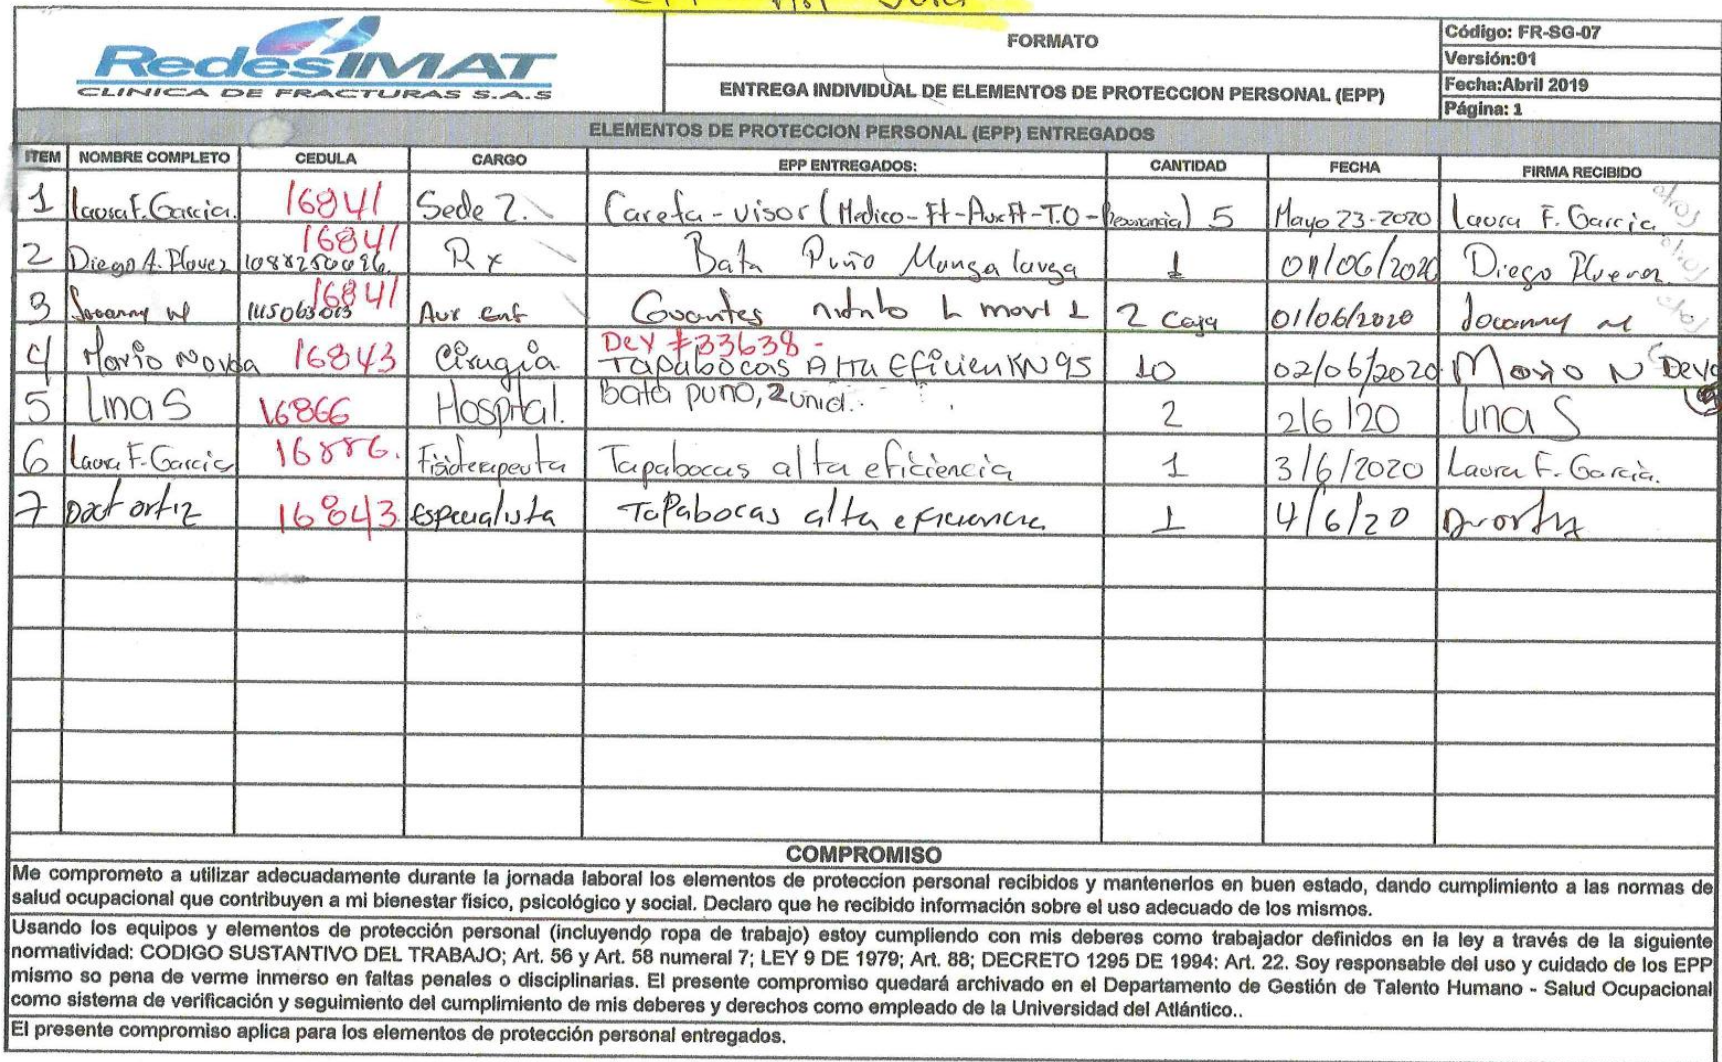 RedesIMAT
CLINICA DE FRACTURAS S.A.S
FORMATO
ENTREGA INDIVIDUAL DE ELEMENTOS DE PROTECCION PERSONAL (EPP)
Código: FR-SG-07
Versión:01
Fecha:Abril 2019
Página: 1
ELEMENTOS DE PROTECCION PERSONAL (EPP) ENTREGADOS
ITEM NOMBRE COMPLETO CEDULA CARGO EPP ENTREGADOS: CANTIDAD FECHA FIRMA RECIBIDO
1 Laura F. Garcia. 16841 Sede 2. Careta - visor (Medico - Ft - Aux Ft - T.O - 5 Mayo 23-2020 Laura F. Garcia
2 Diego A. 16841 Rx Bata Puño Manga larga 1 01/06/2020 Diego
3 16841 Aux Enf Guantes L 1 2 Caja 01/06/2020
4 Mario 16843 Cirugia Dev #33638 - Tapabocas Alta Eficien KN95 10 02/06/2020 Mario N
5 Lina S 16866 Hospital. Bata puno, 2 unid. 2 2/6/20 Lina S
6 Laura F. Garcia 16886. Fisioterapeuta Tapabocas alta eficiencia 1 3/6/2020 Laura F. Garcia.
7 Doct ortiz 16843 especialista Tapabocas alta eficiencia 1 4/6/20
COMPROMISO
Me comprometo a utilizar adecuadamente durante la jornada laboral los elementos de proteccion personal recibidos y mantenerlos en buen estado, dando cumplimiento a las normas de
salud ocupacional que contribuyen a mi bienestar fisico, psicológico y social. Declaro que he recibido información sobre el uso adecuado de los mismos.
Usando los equipos y elementos de protección personal (incluyendo ropa de trabajo) estoy cumpliendo con mis deberes como trabajador definidos en la ley a través de la siguiente
normatividad: CODIGO SUSTANTIVO DEL TRABAJO; Art. 56 y Art. 58 numeral 7; LEY 9 DE 1979; Art. 88; DECRETO 1295 DE 1994: Art. 22. Soy responsable del uso y cuidado de los EPP
mismo so pena de verme inmerso en faltas penales o disciplinarias. El presente compromiso quedará archivado en el Departamento de Gestión de Talento Humano - Salud Ocupacional
como sistema de verificación y seguimiento del cumplimiento de mis deberes y derechos como empleado de la Universidad del Atlántico..
El presente compromiso aplica para los elementos de protección personal entregados.